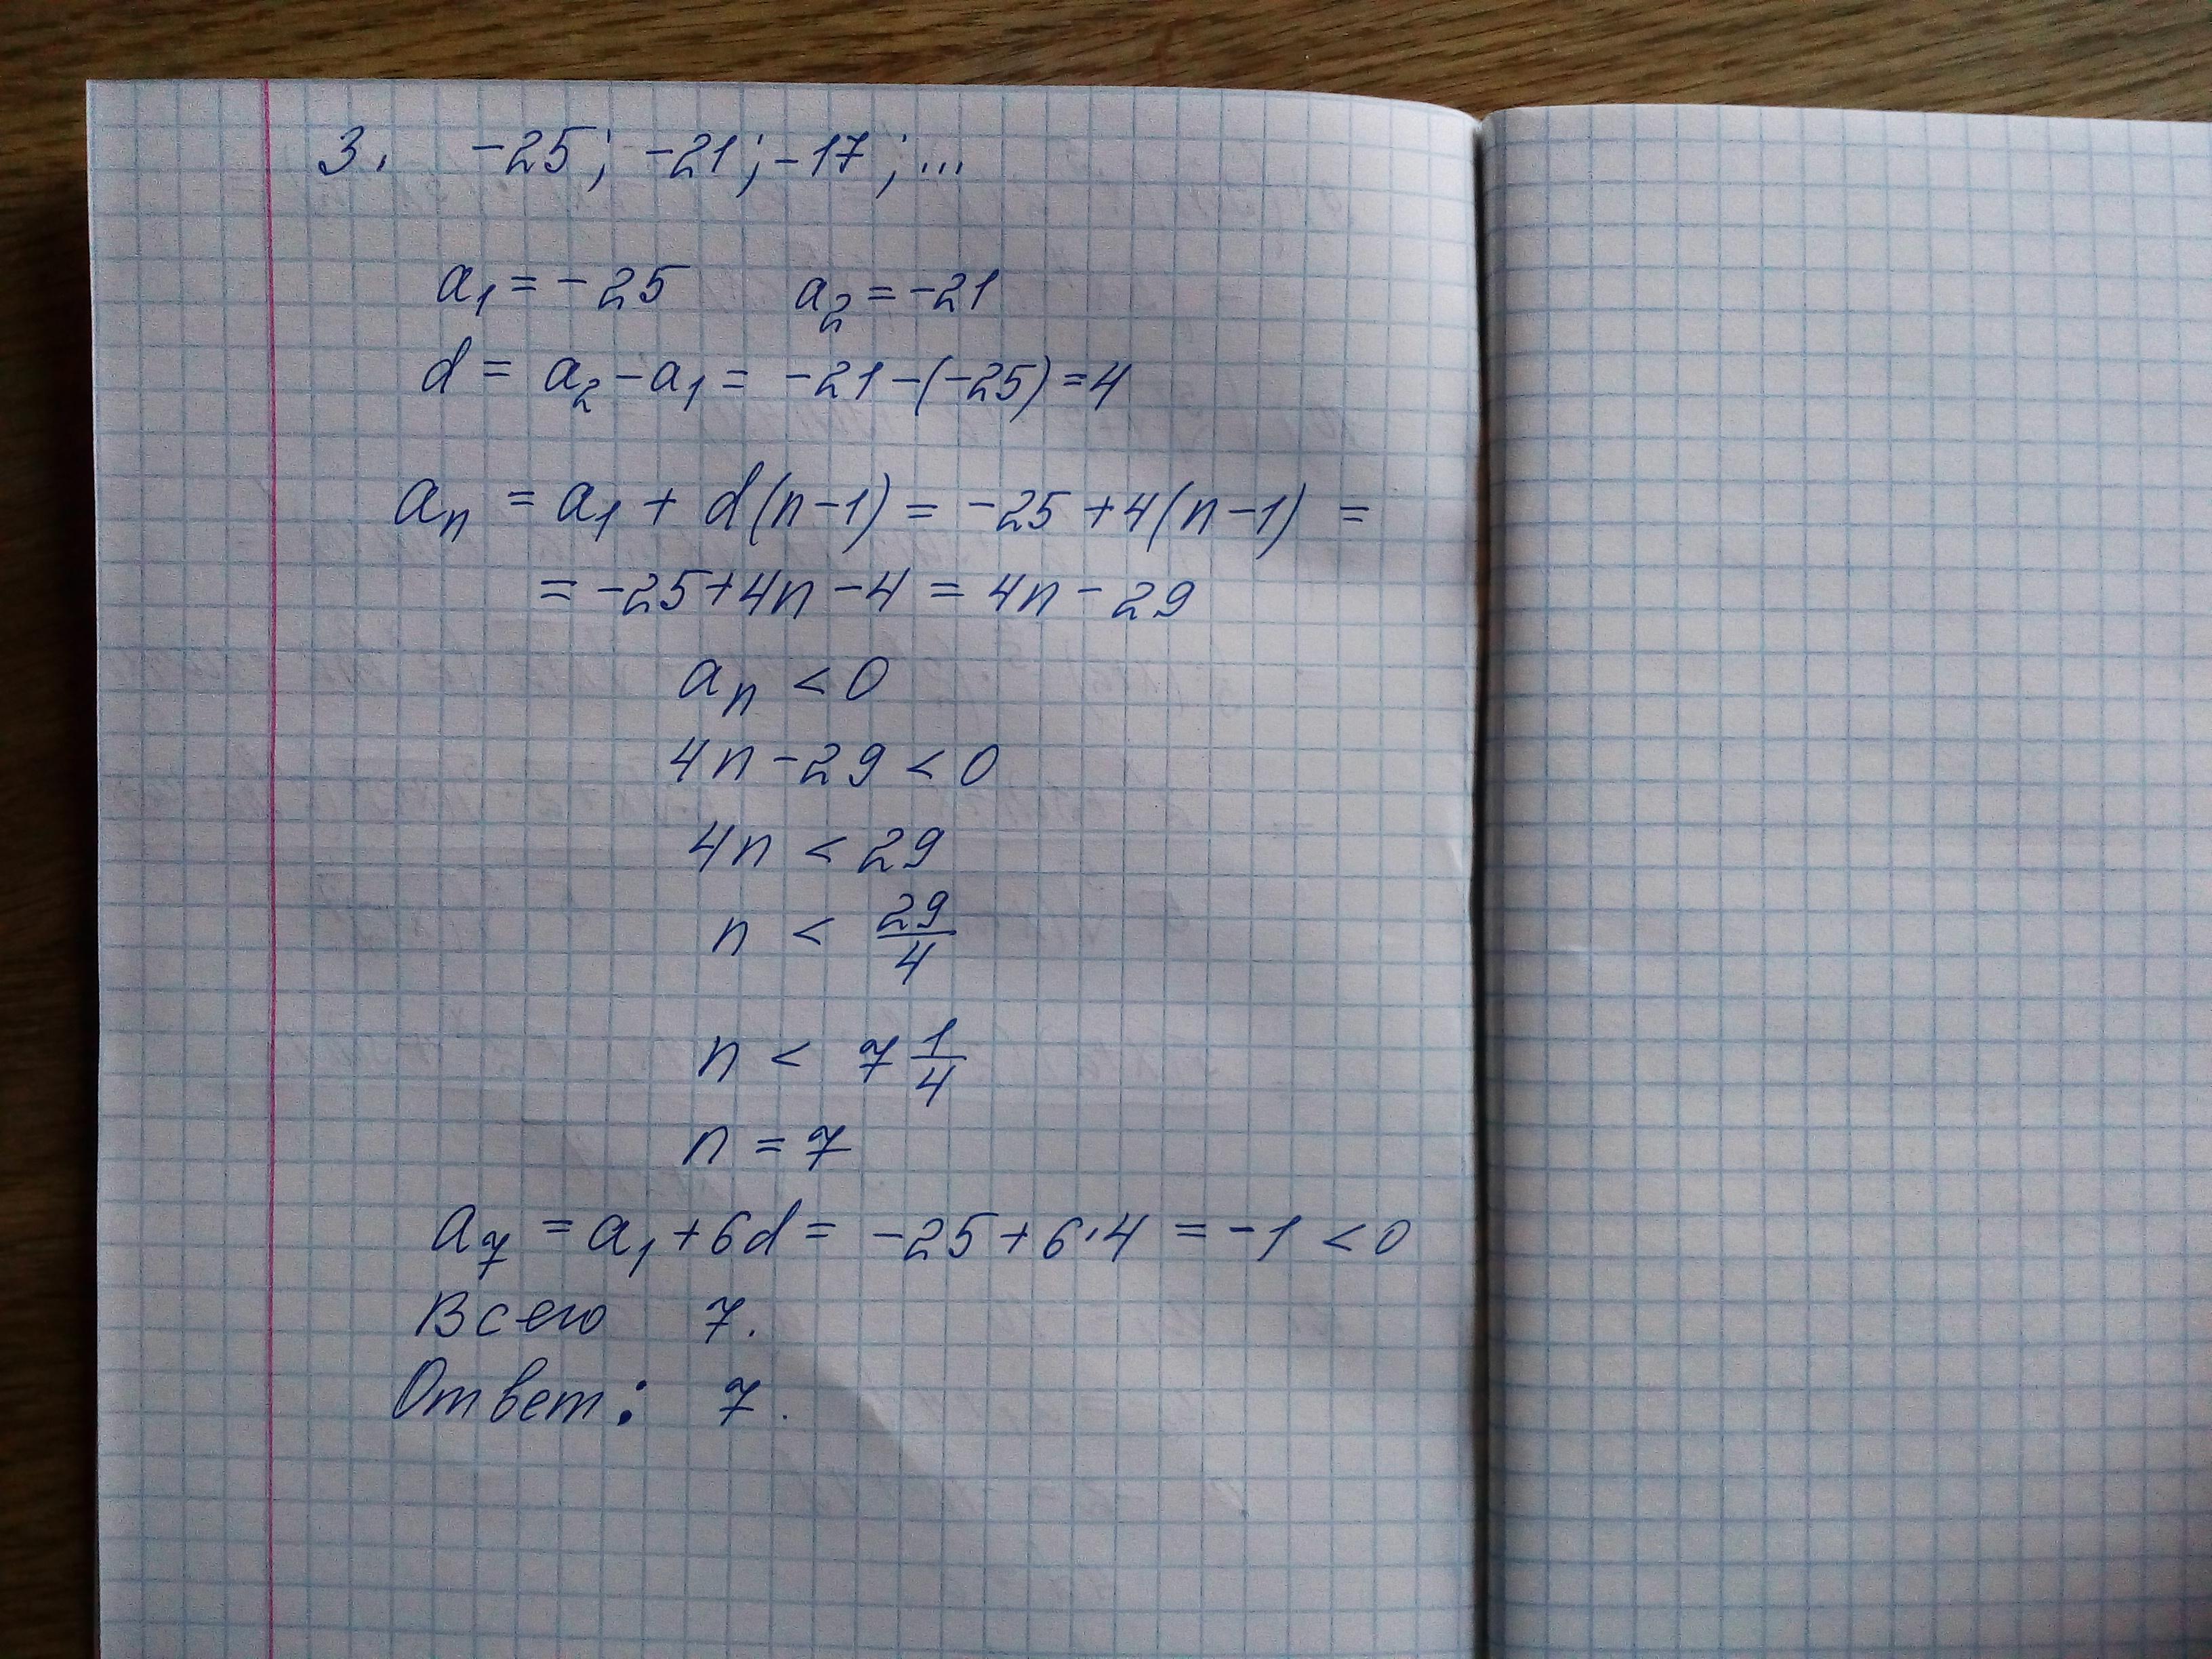 3. -25; -21; -17; ...
a₁ = -25 a₂ = -21
d = a₂ - a₁ = -21 - (-25) = 4
aₙ = a₁ + d(n-1) = -25 + 4(n-1) =
= -25 + 4n - 4 = 4n - 29
aₙ < 0
4n - 29 < 0
4n < 29
n < 29/4
n < 7 1/4
n = 7
a₇ = a₁ + 6d = -25 + 6·4 = -1 < 0
Всего 7.
Ответ: 7.